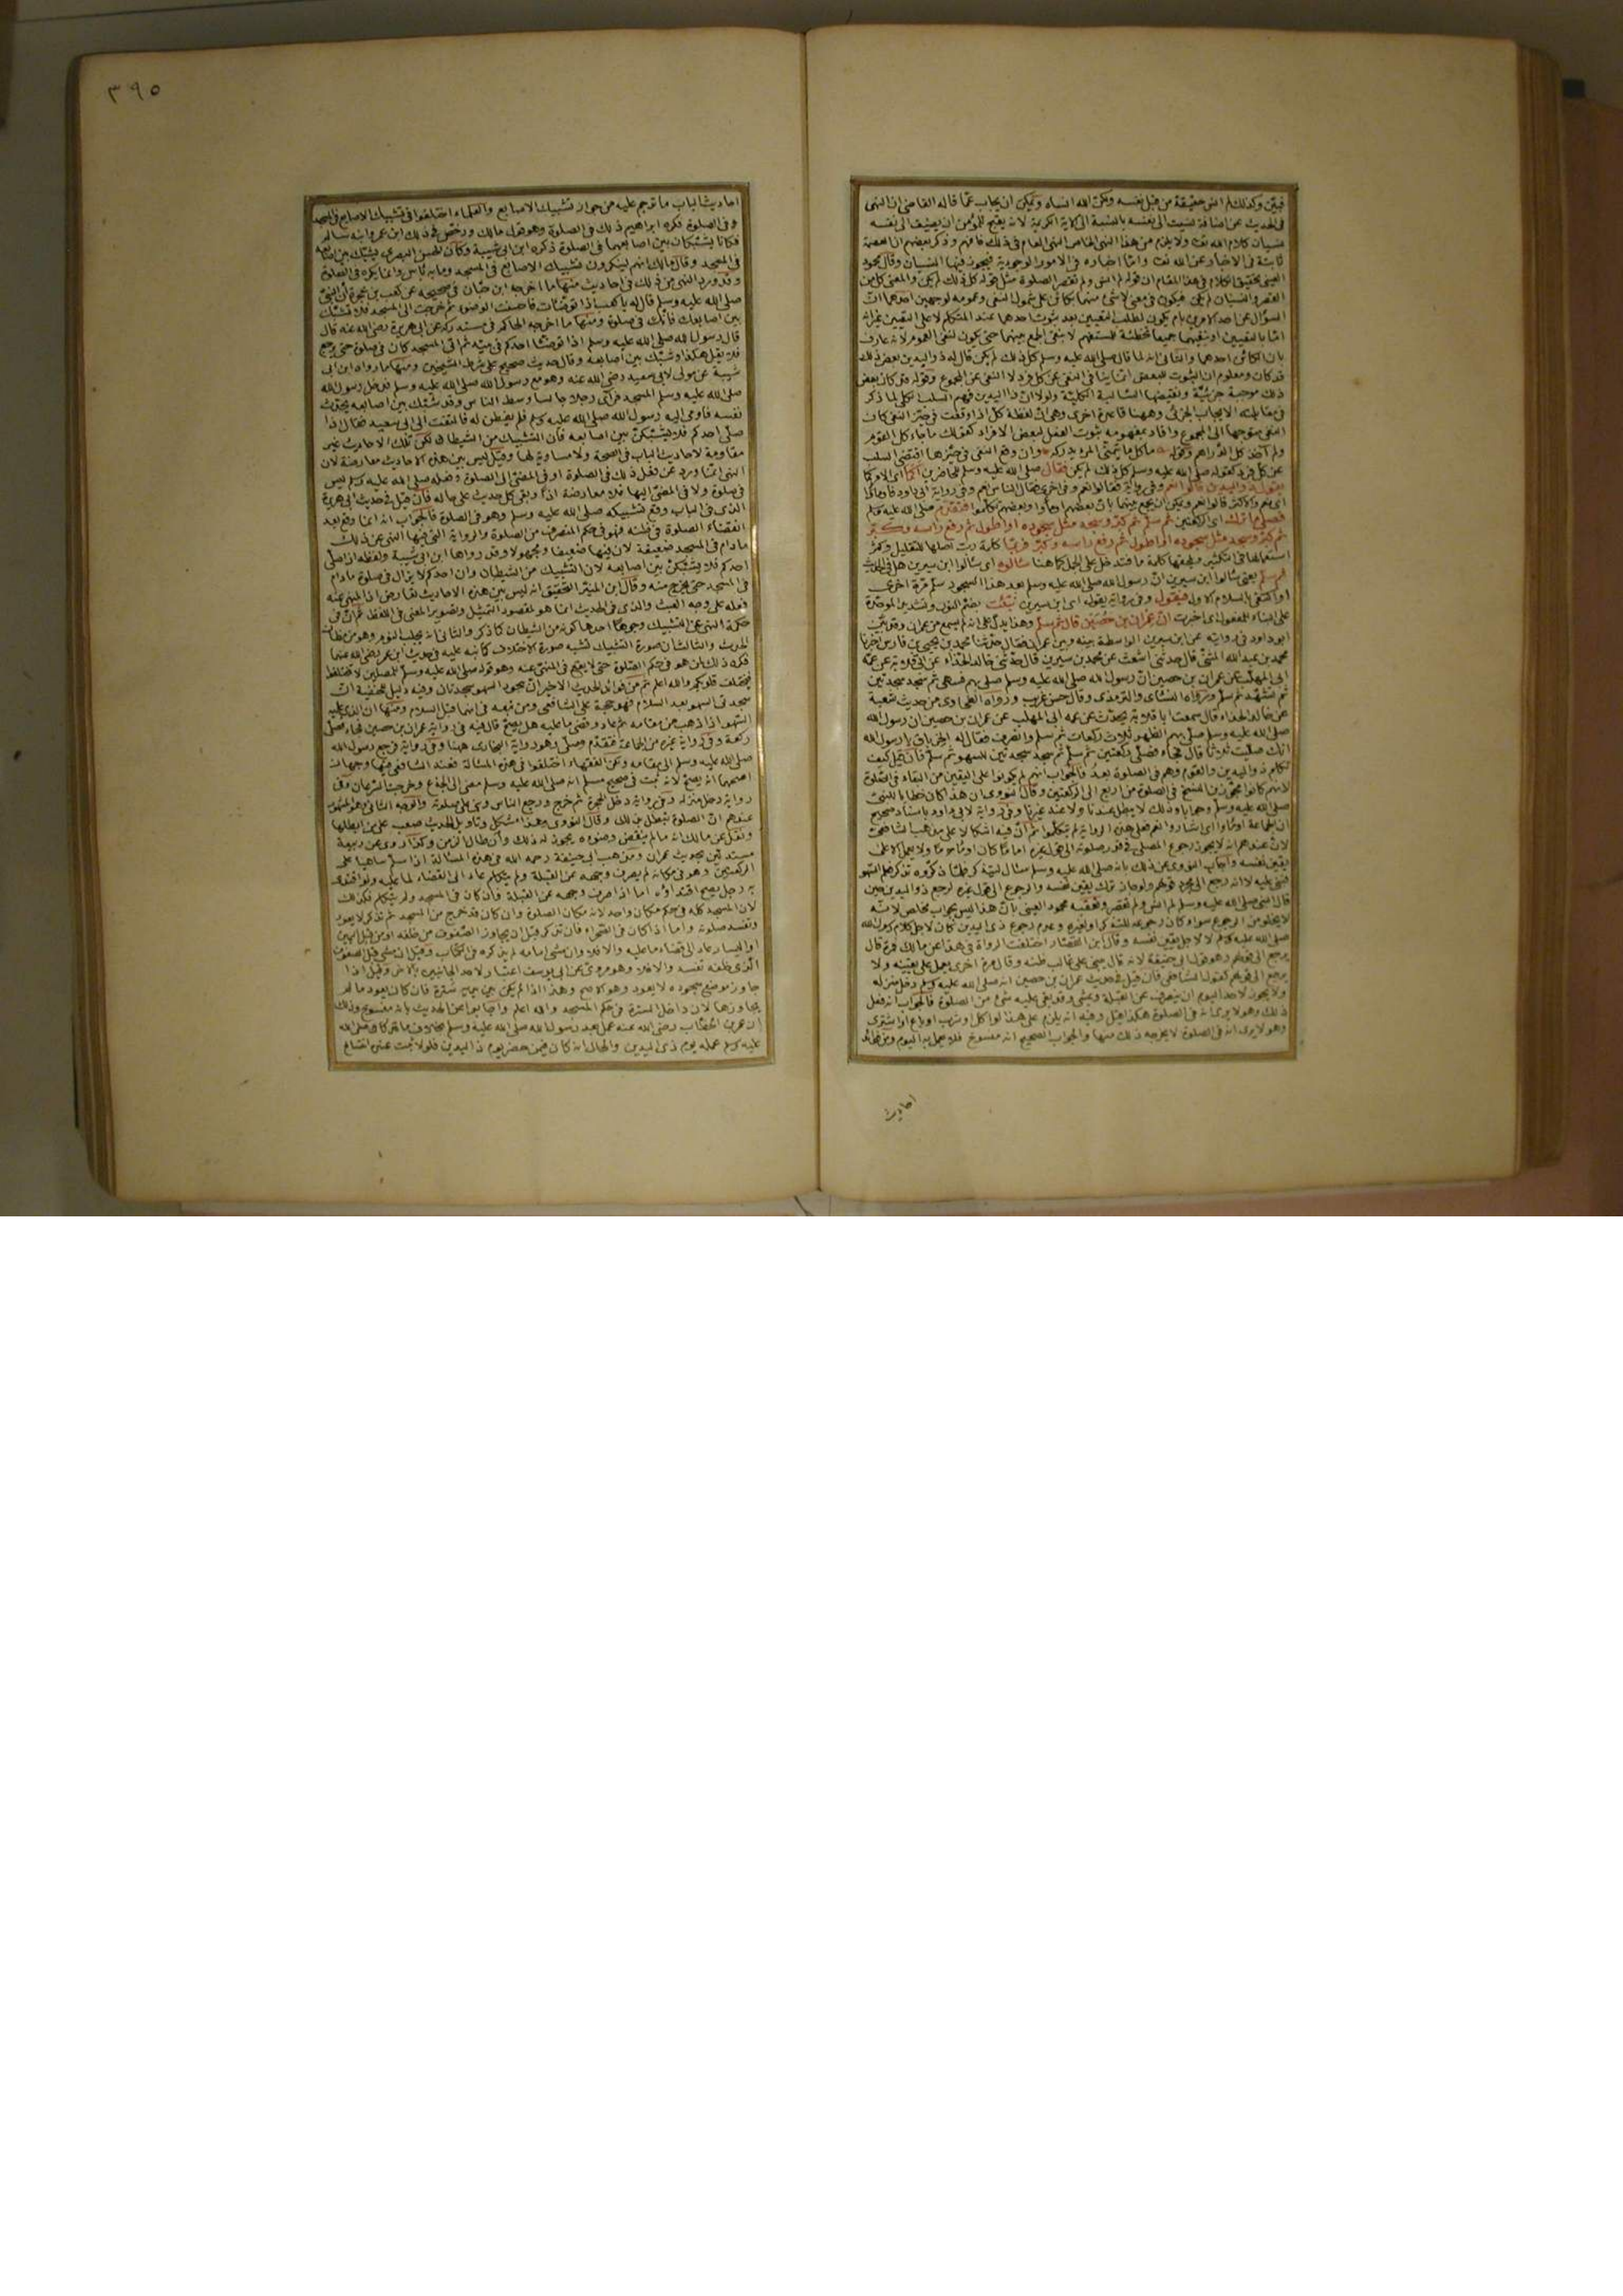 ٣٩٥
فبيّن وكذلك لم انس حقيقة من قبل نفسه ولكن الله انساه ويمكن ان يجاب عمّا قاله القاضي ان النهي
في الحديث عن اضافة نسيت الى نفسه بالنسبة الى الآية الكريمة لانه يقبح للمؤمن ان يضيف الى نفسه
نسيان كلام الله تعالى ولا يلزم من هذا النهي الخاص النهي العام في ذلك فافهم وذكر بعضهم ان العصمة
ثابتة في الاخبار عن الله تعالى وامّا اخباره في الامور الوجودية فيجوز فيها النسيان وقال محمود
العيني تحقيق الكلام في هذا المقام ان قوله لم انس ولم تقصر الصلوة مثل قوله كل ذلك لم يكن والمعنى كل من
القصر والنسيان لم يكن فيكون في معنى لا شئ منهما بكائن على شمول النفي وعمومه لوجهين احدهما انّ
السؤال عن احد الامرين بام يكون لطلب التعيين بعد ثبوت احدهما عند المتكلم لا على التعيين
امّا بالتعيين او بنفيهما جميعا تخطئة للمستفهم لا بنفي الجمع بينهما حتى يكون لنفي العموم لانه عارف
بان الكائن احدهما والثاني انه لما قال صلى الله عليه وسلم كل ذلك لم يكن قال له ذو اليدين بعض ذلك
قد كان ومعلوم ان الثبوت للبعض انما ينافي النفي عن كل فرد لا النفي عن المجموع وقوله قد كان بعض
ذلك موجبة جزئية ونقيضها السالبة الكلية ولولا ان ذا اليدين فهم السلب الكلي لما ذكر
في مقابلته الايجاب الجزئي وههنا قاعدة اخرى وهي انّ لفظة كل اذا وقعت في حيّز النفي كان
النفي متوجها الى المجموع وافاد بمفهومه ثبوت الفعل لبعض الافراد كقولك ما جاء كل القوم
ولم آخذ كل الدراهم وقوله ما كل ما يتمنى المرء يدركه وان وقع النفي في حيّزها اقتضى السلب
عن كل فرد كقوله صلى الله عليه وسلم كل ذلك لم يكن فقال صلى الله عليه وسلم للحاضرين أكما
يقول ذو اليدين قالوا نعم وفي رواية فقالوا نعم وفي اخرى فقال الناس نعم وفي رواية ابي داود فاومأوا
اى نعم والاكثر قالوا نعم ويمكن ان يجمع بينهما بان بعضهم اومأوا وبعضهم تكلموا فتقدّم صلى الله عليه وسلم
فصلى ما ترك اى الركعتين ثم سلم ثم كبّر وسجد مثل سجوده او اطول ثم رفع راسه وكبّر
ثم كبّر وسجد مثل سجوده او اطول ثم رفع راسه وكبّر فربّما كلمة ربّ اصلها للتقليل وكثر
استعمالها في التكثير وتلحقها كلمة ما فتدخل على الجمل كما هنا سألوه اى سألوا ابن سيرين هل في الحديث
ثم سلم يعني سألوا ابن سيرين انّ رسول الله صلى الله عليه وسلم بعد هذا السجود سلم مرّة اخرى
او اكتفى بالسلام الاول فيقول وفي رواية يقول اى ابن سيرين نُبّئت بضم النون وتشديد الموحّدة
على البناء للمفعول اى اخبرت انّ عمران بن حصين قال ثم سلم وهذا يدلّ على انه لم يسمع من عمران وقد بيّن
ابو داود في روايته عن ابن سيرين الواسطة بينه وبين عمران فقال حدّثنا محمد بن يحيى بن فارس اخبرنا
محمد بن عبد الله المثنى قال حدثني اشعث عن محمد بن سيرين قال حدّثني خالد الحذاء عن ابي قلابة عن عمّه
ابي المهلّب عن عمران بن حصين انّ رسول الله صلى الله عليه وسلم صلى بهم فسهى ثم سجد سجدتين
ثم تشهد ثم سلم ورواه النسائي والترمذي وقال حسن غريب ورواه الطحاوي من حديث شعبة
عن خالد الحذاء قال سمعت ابا قلابة يحدّث عن عمه ابي المهلب عن عمران بن حصين ان رسول الله
صلى الله عليه وسلم صلى بهم الظهر ثلاث ركعات ثم سلم وانصرف فقال له الخرباق يا رسول الله
انك صليت ثلاثا قال فجاء فصلى ركعتين ثم سلم ثم سجد سجدتين للسهو ثم سلم فان قيل كيف
تكلم ذو اليدين والقوم وهم في الصلوة بعد فالجواب انهم لم يكونوا على اليقين من البقاء في الصلوة
لانهم كانوا مجوّزين النسخ في الصلوة من اربع الى الركعتين وقال النووي ان هذا كان خطابا للنبي
صلى الله عليه وسلم وجوابا وذلك لا يبطل عندنا ولا عند غيرنا وفي رواية لابي داود باسناد صحيح
ان الجماعة اومأوا اى اشاروا نعم فعلى هذه الرواية لم يتكلموا ثم انّ فيه اشكالا على مذهب الشافعي
لانّ عندهم انه لا يجوز رجوع المصلي في قدر صلوته الى قول غيره اماما كان او مأموما ولا يعمل الا على
يقين نفسه واجاب النووي عن ذلك بانه صلى الله عليه وسلم سئال ليتذكر فلمّا ذكّروه تذكر فعلم السهو
فبنى عليه لا انه رجع الى مجرد قولهم ولو جاز ترك يقين نفسه والرجوع الى قول غيره لرجع ذو اليدين حين
قال النبي صلى الله عليه وسلم لم انس ولم تقصر وتعقبه محمود العيني بانّ هذا ليس بجواب مخلص لانه
لا يخلو من الرجوع سواء كان رجوعه للتذكر او لغيره وعدم رجوع ذي اليدين كان لاجل كلام رسول الله
صلى الله عليه وسلم لا لاجل يقين نفسه وقال ابن القصّار اختلفت الرواة في هذا عن مالك فمرة قال
يرجع الى قولهم وهو قول ابي حنيفة لانه قال يبني على غالب ظنه وقال مرة اخرى يعمل على يقينه ولا
يرجع الى قولهم كقول الشافعي فان قيل في حديث عمران بن حصين انه صلى الله عليه وسلم دخل منزله
ولا يجوز لاحد اليوم ان ينصرف عن القبلة ويمشي وقد بقي عليه شئ من الصلوة فالجواب انه فعل
ذلك وهو لا يرى انه في الصلوة هكذا قيل وفيه انه يلزم على هذا لو اكل او شرب او باع او اشترى
وهو لا يرى انه في الصلوة لا يخرجه ذلك منها والجواب الصحيح انه منسوخ فلا يعمل به اليوم ومن فوائد
احاديث
احاديث الباب ما ترجم عليه من جواز تشبيك الاصابع والعلماء اختلفوا في تشبيك الاصابع في المسجد
وفي الصلوة فكره ابراهيم ذلك في الصلوة وهو قول مالك ورخّص في ذلك ابن عمر وابنه سالم
فكانا يشبّكان بين اصابعهما في الصلوة ذكره ابن ابي شيبة وكان الحسن البصري يشبّك بين اصابعه
في المسجد وقال مالك انهم لينكرون تشبيك الاصابع في المسجد وما به بأس وانما يكره في الصلوة
وقد ورد النهي عن ذلك في احاديث منها ما اخرجه ابن حبّان في صحيحه عن كعب بن عجرة أن النبي
صلى الله عليه وسلم قال له يا كعب اذا توضّأت فاحسنت الوضوء ثم خرجت الى المسجد فلا تشبّك
بين اصابعك فانّك في صلوة ومنها ما اخرجه الحاكم في مستدركه عن ابي هريرة رضي الله عنه قال
قال رسول الله صلى الله عليه وسلم اذا توضّأ احدكم في بيته ثم اتى المسجد كان في صلوة حتى يرجع
فلا يفعل هكذا وشبّك بين اصابعه وقال حديث صحيح على شرط الشيخين ومنها ما رواه ابن ابي
شيبة عن مولى لابي سعيد رضي الله عنه وهو مع رسول الله صلى الله عليه وسلم فدخل رسول الله
صلى الله عليه وسلم المسجد فرآى رجلا جالسا وسط الناس وقد شبّك بين اصابعه يحدّث
نفسه فاومى اليه رسول الله صلى الله عليه وسلم فلم يفطن له فالتفت الى ابي سعيد فقال اذا
صلّى احدكم فلا يشبّكنّ بين اصابعه فان التشبيك من الشيطان لكن تلك الاحاديث غير
مقاومة لاحاديث الباب في الصحة ولا مساوية لها وقيل ليس بين هذه الاحاديث معارضة لان
النهي انّما ورد عن فعل ذلك في الصلوة او في المضيّ الى الصلوة وفعله صلى الله عليه وسلم ليس
في صلوة ولا في المضيّ اليها فلا معارضة اذًا وبقي كل حديث على حاله فان قيل في حديث ابي هريرة
الذي في الباب وقع تشبيكه صلى الله عليه وسلم وهو في الصلوة فالجواب انه انما وقع بعد
انقضاء الصلوة في ظنه فهو في حكم المنصرف من الصلوة والرواية التي فيها النهي عن ذلك
ما دام في المسجد ضعيفة لان فيها ضعيفا ومجهولا وقد رواها ابن ابي شيبة ولفظه اذا صلّى
احدكم فلا يشبّكنّ بين اصابعه لان التشبيك من الشيطان وان احدكم لا يزال في صلوة ما دام
في المسجد حتى يخرج منه وقال ابن المنيّر التحقيق انه ليس بين هذه الاحاديث تعارض اذ المنهي عنه
فعله على وجه العبث والذي في الحديث انما هو لمقصود التمثيل وتصوير المعنى في اللفظ ثم انّ في
حكمة النهي عن التشبيك وجوهًا احدها كونه من الشيطان كما ذكر والثاني انه يجلب النوم وهو من مظانّ
الحدث والثالث ان صورة التشبيك تشبه صورة الاختلاف كما نبه عليه في حديث ابن عمر رضي الله عنهما
فكره ذلك لمن هو في حكم الصلوة حتى لا يقع في المنهي عنه وهو قوله صلى الله عليه وسلم للمصلين لا تختلفوا
فتختلف قلوبكم والله اعلم ثم من فوائد الحديث الاخير ان سجود السهو سجدتان وفيه دليل للحنفية انّ
سجدتي السهو بعد السلام فهو حجة على الشافعي ومن تبعه في انهما قبل السلام ومنها ان الذي عليه
السّهو اذا ذهب من مقامه ثم عاد وقضى ما عليه هل يصحّ قال فيه في رواية عمران بن حصين فجاء فصلى
ركعة وفي رواية غيره من الجماعة فتقدّم وصلّى وهو رواية البخاري ههنا وفي رواية فرجع رسول الله
صلى الله عليه وسلم الى مقامه ولكن الفقهاء اختلفوا في هذه المسئلة فعند الشافعي فيها وجهان
اصحهما انه يصح لانه ثبت في صحيح مسلم انه صلى الله عليه وسلم مضى الى الجذع وخرجت السرعان وفي
رواية دخل منزله وفي رواية دخل الحجرة ثم خرج ورجع الناس وبنى على صلوته والوجه الثاني وهو المشهور
عندهم انّ الصلوة تبطل بذلك وقال النووي وهذا مشكل وتاويل الحديث صعب على من ابطلها
ونقل عن مالك انه ما لم ينقض وضوءه يجوز له ذلك وان طال الزمن وكذا روي عن ربيعة
مستدلّين بحديث عمران ومذهب ابي حنيفة رحمه الله في هذه المسئلة اذا سلّم ساهيا على
الركعتين وهو في مكانه لم يصرف وجهه عن القبلة ولم يتكلم عاد الى القضاء لما عليه ولو اقتدى
به رجل يصح اقتداؤه اما اذا صرف وجهه عن القبلة فان كان في المسجد ولم يتكلم فكذلك
لان المسجد كله في حكم مكان واحد لانه مكان الصلوة وان كان قد خرج من المسجد ثم تذكر لا يعود
وتفسد صلوته واما اذا كان في الصحراء فان تذكر قبل ان يجاوز الصفوف من خلفه او من قبل اليمين
او اليسار عاد الى قضاء ما عليه والا فلا وان مشى امامه لم يذكره في الكتاب وقيل ان مشى قبل الصفوف
الذي خلفه تفسد والا فلا وهو مروي عن ابي يوسف اعتبارًا لاحد الجانبين بالآخر وقيل اذا
جاوز موضع سجوده لا يعود وهو الاصح وهذا اذا لم يكن بين يديه سُترة فان كان يعود ما لم
يجاوزها لان داخل السترة في حكم المسجد والله اعلم واجابوا عن الحديث بانه منسوخ وذلك
ان عمر بن الخطّاب رضي الله عنه عمل بعد رسول الله صلى الله عليه وسلم بخلاف ما كان صلى الله
عليه وسلم عمله يوم ذي اليدين والحال انه كان فيمن حضر يوم ذا اليدين فلولا ثبت عنده انتساخ